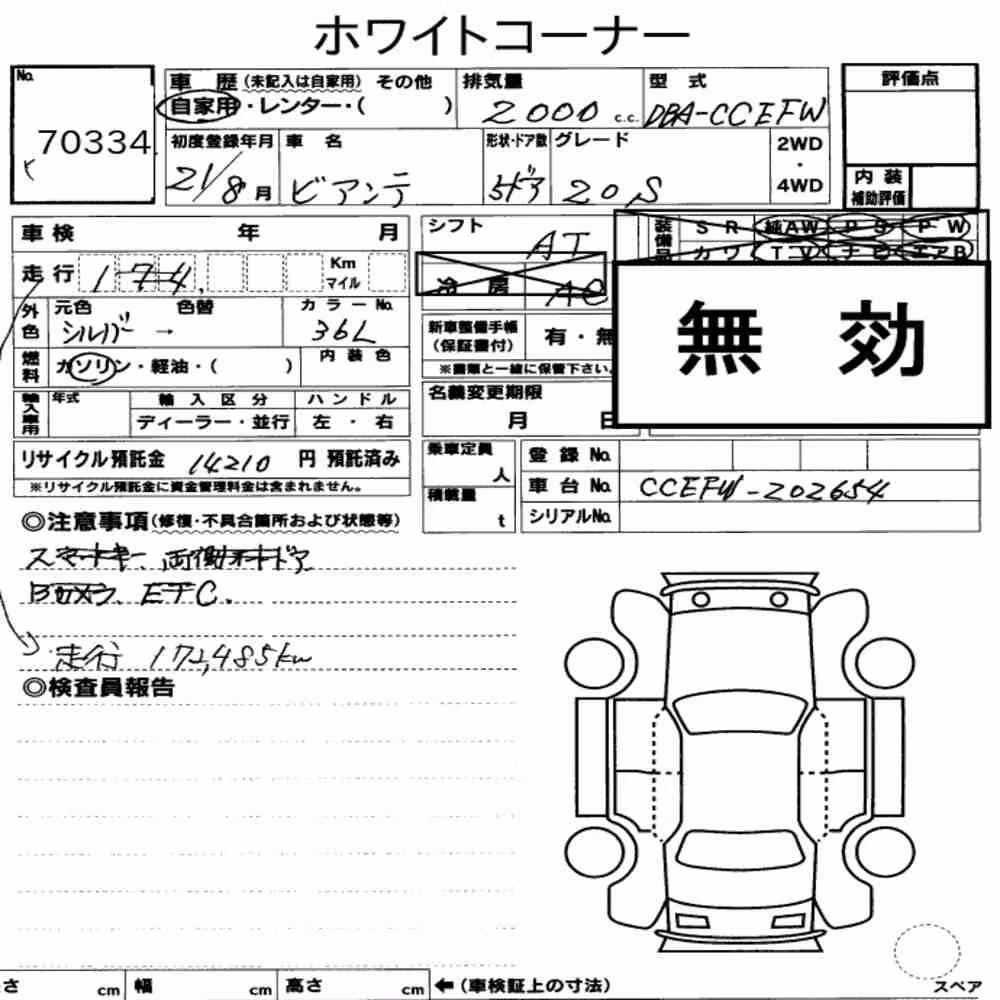 ホワイトコーナー
No.
70334
車 歴 (未記入は自家用) その他
自家用・レンター・( )
排気量
2000 c.c.
型 式
DBA-CCEFW
評価点
初度登録年月
21/8 月
車 名
ビアンテ
形状・ドア数
5ドア
グレード
20S
2WD
・
4WD
内 装
補助評価
車 検 年 月
走 行 174. Km
マイル
外色
元色 色替
シルバー →
カラーNo.
36L
燃料
ガソリン・軽油・( )
内 装 色
輸入車用
年式
輸 入 区 分
ディーラー・並行
ハ ン ド ル
左 ・ 右
リサイクル預託金 14210 円 預託済み
※リサイクル預託金に資金管理料金は含まれません。
シフト
AT
冷 房 AC
装備品
S R 純AW P S P W
カ ワ T V ナ ビ エアB
無 効
新車整備手帳
(保証書付)
有・無
※書類と一緒に保管下さい。
名義変更期限
月 日
乗車定員
人
積載量
t
登 録 No.
車 台 No. CCEFW-202654
シリアルNo.
◎注意事項(修復・不具合箇所および状態等)
スマートキー、両側オートドア
Bカメラ、ETC.
走行 172,485km
◎検査員報告
さ cm 幅 cm 高さ cm ←(車検証上の寸法)
スペア